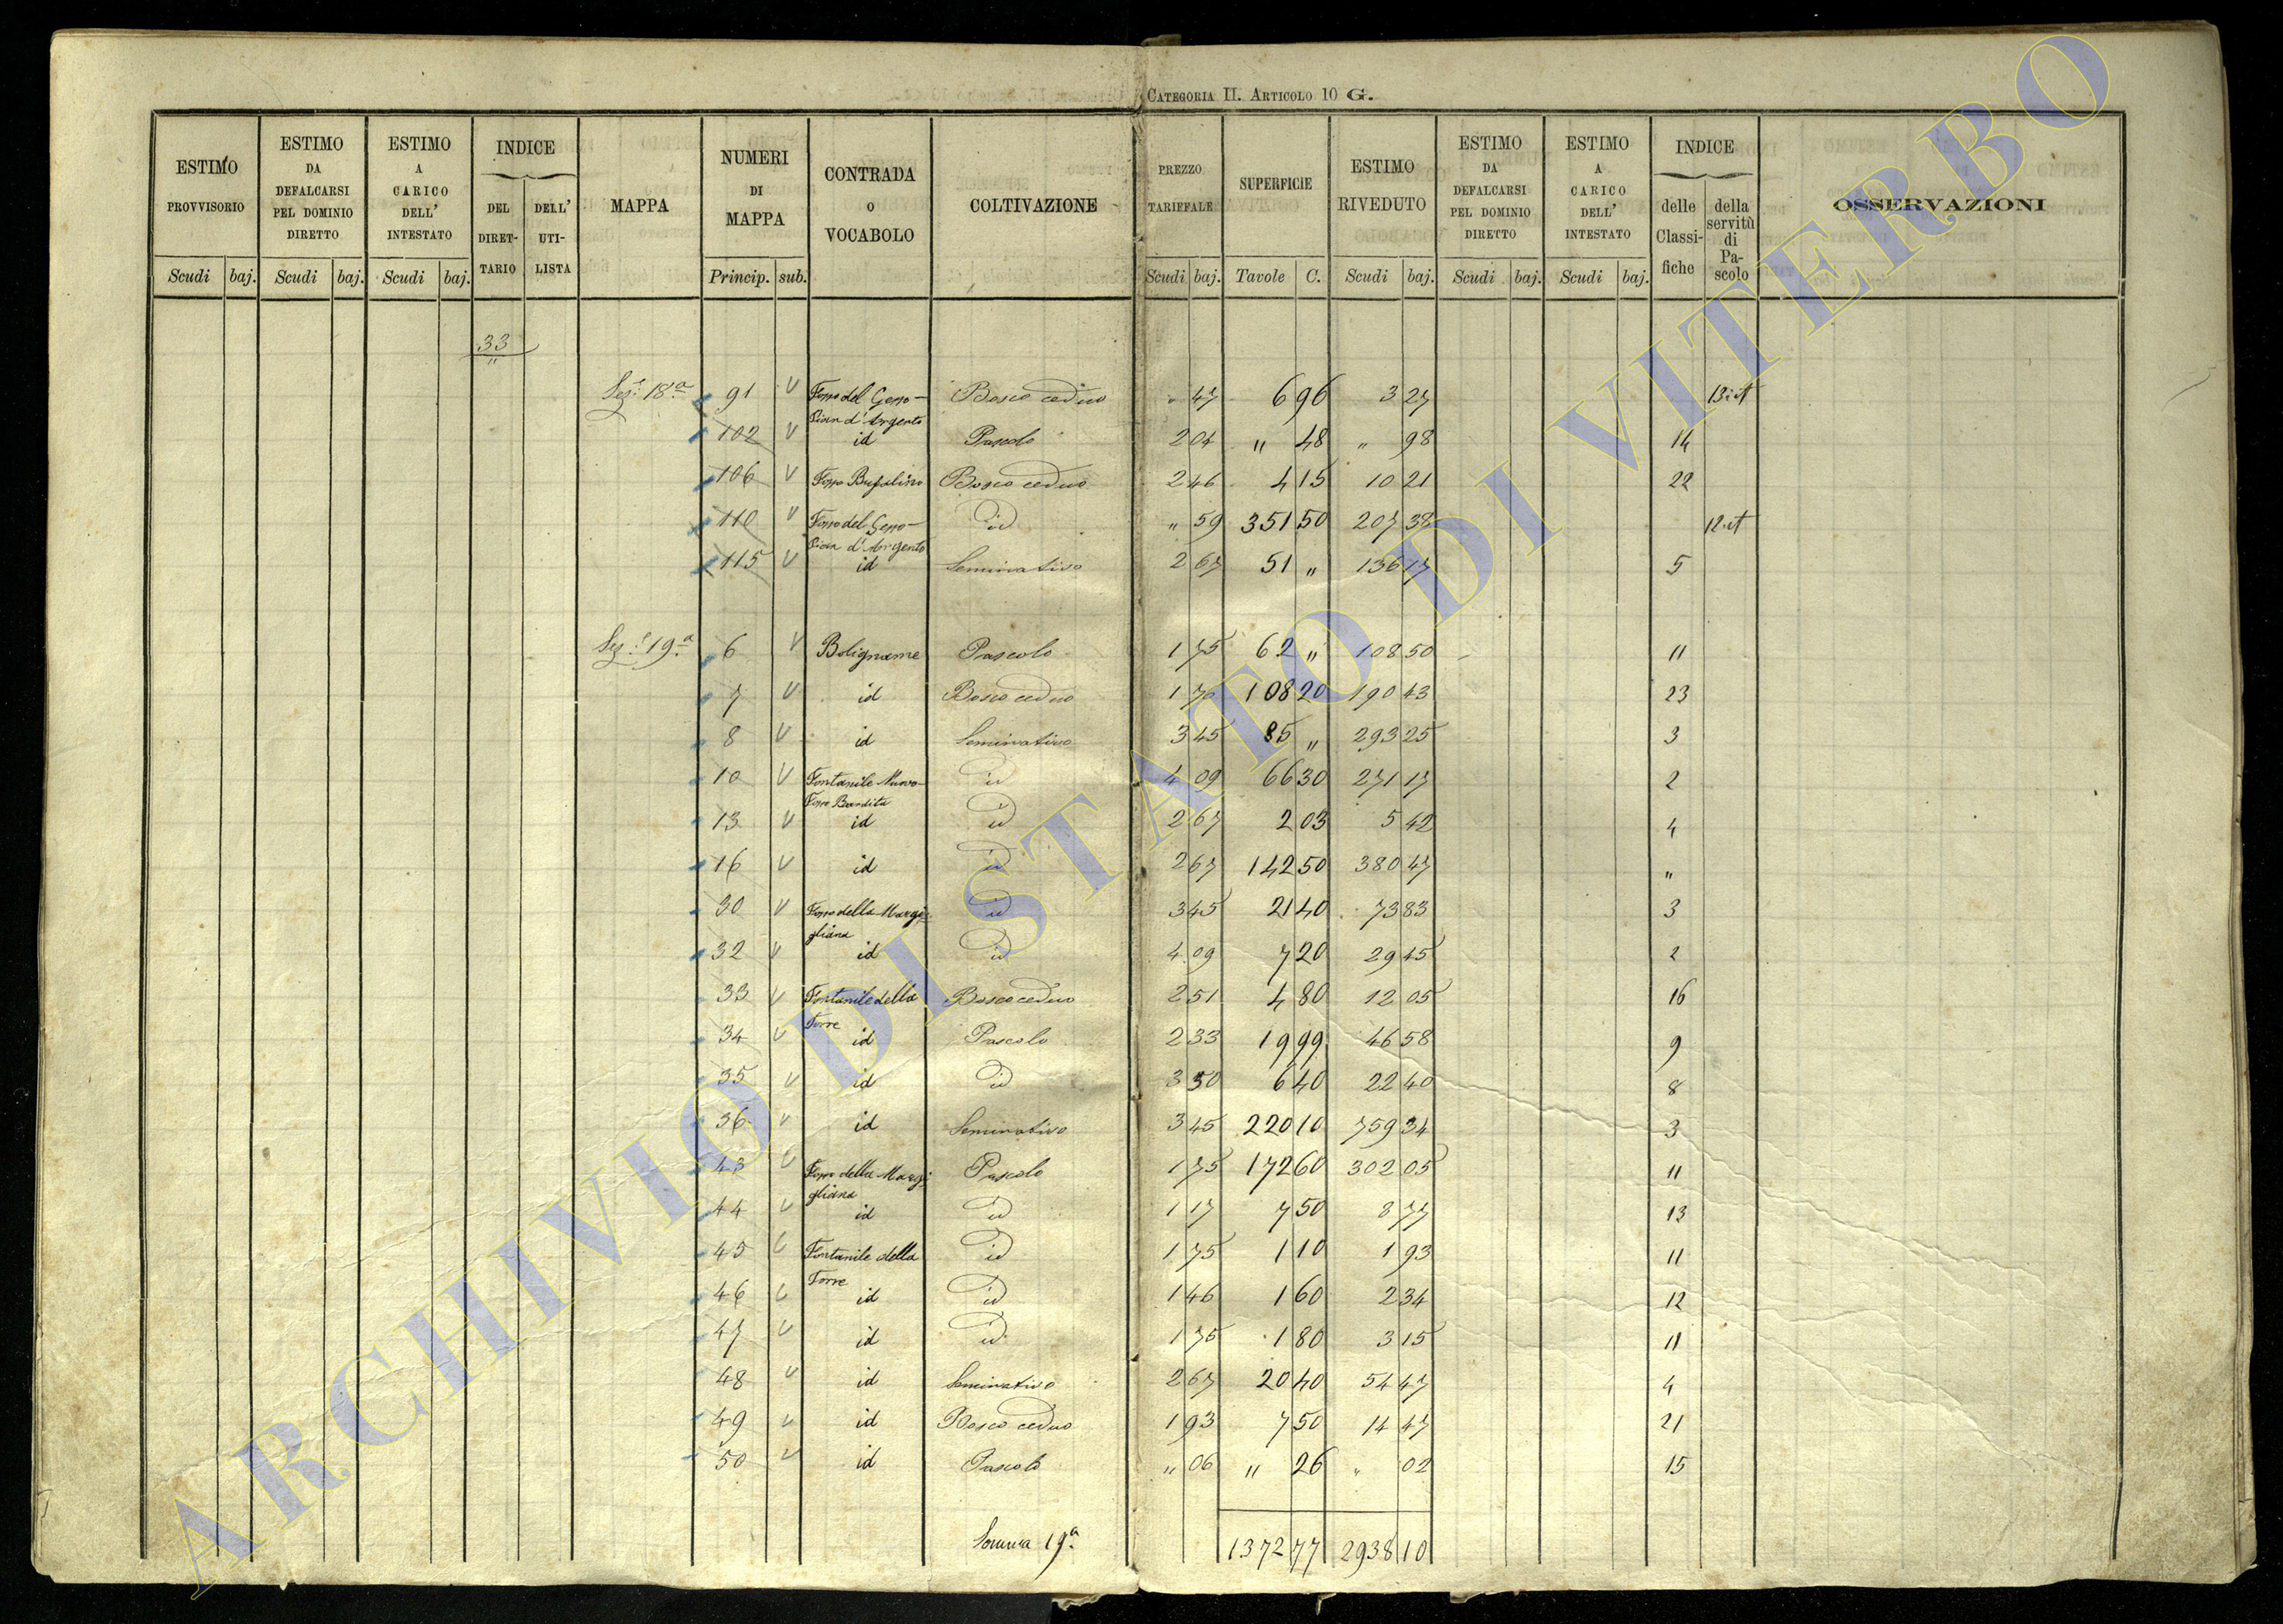 CATEGORIA II. ARTICOLO 10 G.
ESTIMO PROVVISORIO Scudi baj.
ESTIMO DA DEFALCARSI PEL DOMINIO DIRETTO Scudi baj.
ESTIMO A CARICO DELL' INTESTATO Scudi baj.
INDICE DEL DIRETTARIO DELL' UTILISTA
MAPPA
NUMERI DI MAPPA Princip. sub.
CONTRADA O VOCABOLO
COLTIVAZIONE
PREZZO TARIFFALE Scudi baj.
SUPERFICIE Tavole C.
ESTIMO RIVEDUTO Scudi baj.
ESTIMO DA DEFALCARSI PEL DOMINIO DIRETTO Scudi baj.
ESTIMO A CARICO DELL' INTESTATO Scudi baj.
INDICE delle Classifiche della servitù di Pascolo
OSSERVAZIONI
33
"
Sez.e 18.a 91 V Fosso del Gesso - Bosco ceduo " 47 6 96 3 27 13
Pian d'Argento
102 V id Pascolo 2 04 " 48 " 98 14
106 V Fosso Bufalino Bosco ceduo 2 46 4 15 10 21 22
110 V Fosso del Gesso - id " 59 351 50 207 38 12
Pian d'Argento
115 V id Seminativo 2 67 51 " 136 17 5
Sez.e 19.a 6 V Boligname Pascolo 1 75 62 " 108 50 11
7 V id Bosco ceduo 1 76 108 20 190 43 23
8 V id Seminativo 3 45 85 " 293 25 3
10 V Fontanile Nuovo - id 4 09 66 30 271 17 2
Fosso Bandita
13 V id id 2 67 2 03 5 42 4
16 V id id 2 67 142 50 380 47 "
30 V Fosso della Margi- id 3 45 21 40 73 83 3
gliana
32 V id id 4 09 7 20 29 45 2
33 V Fontanile della Bosco ceduo 2 51 4 80 12 05 16
Torre
34 V id Pascolo 2 33 19 99 46 58 9
35 V id id 3 50 6 40 22 40 8
36 V id Seminativo 3 45 220 10 759 34 3
43 V Fosso della Margi- Pascolo 1 75 172 60 302 05 11
gliana
44 V id id 1 17 7 50 8 77 13
45 V Fontanile della id 1 75 1 10 1 93 11
Torre
46 V id id 1 46 1 60 2 34 12
47 V id id 1 75 1 80 3 15 11
48 V id Seminativo 2 67 20 40 54 47 4
49 V id Bosco ceduo 1 93 7 50 14 47 21
50 V id Pascolo " 06 " 26 " 02 15
Somma 19.a 1372 77 2938 10
ARCHIVIO DI STATO DI VITERBO